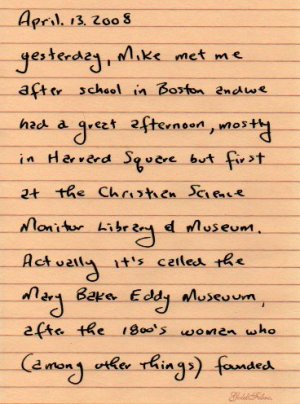 April. 13. 2008
yesterday, Mike met me
after school in Boston andwe
had a great afternoon, mostly
in Harverd Square but first
at the Christian Science
Monitor Library & Museum.
Actually it's called the
Mary Baker Eddy Museuum,
after the 1800's woman who
(among other things) founded